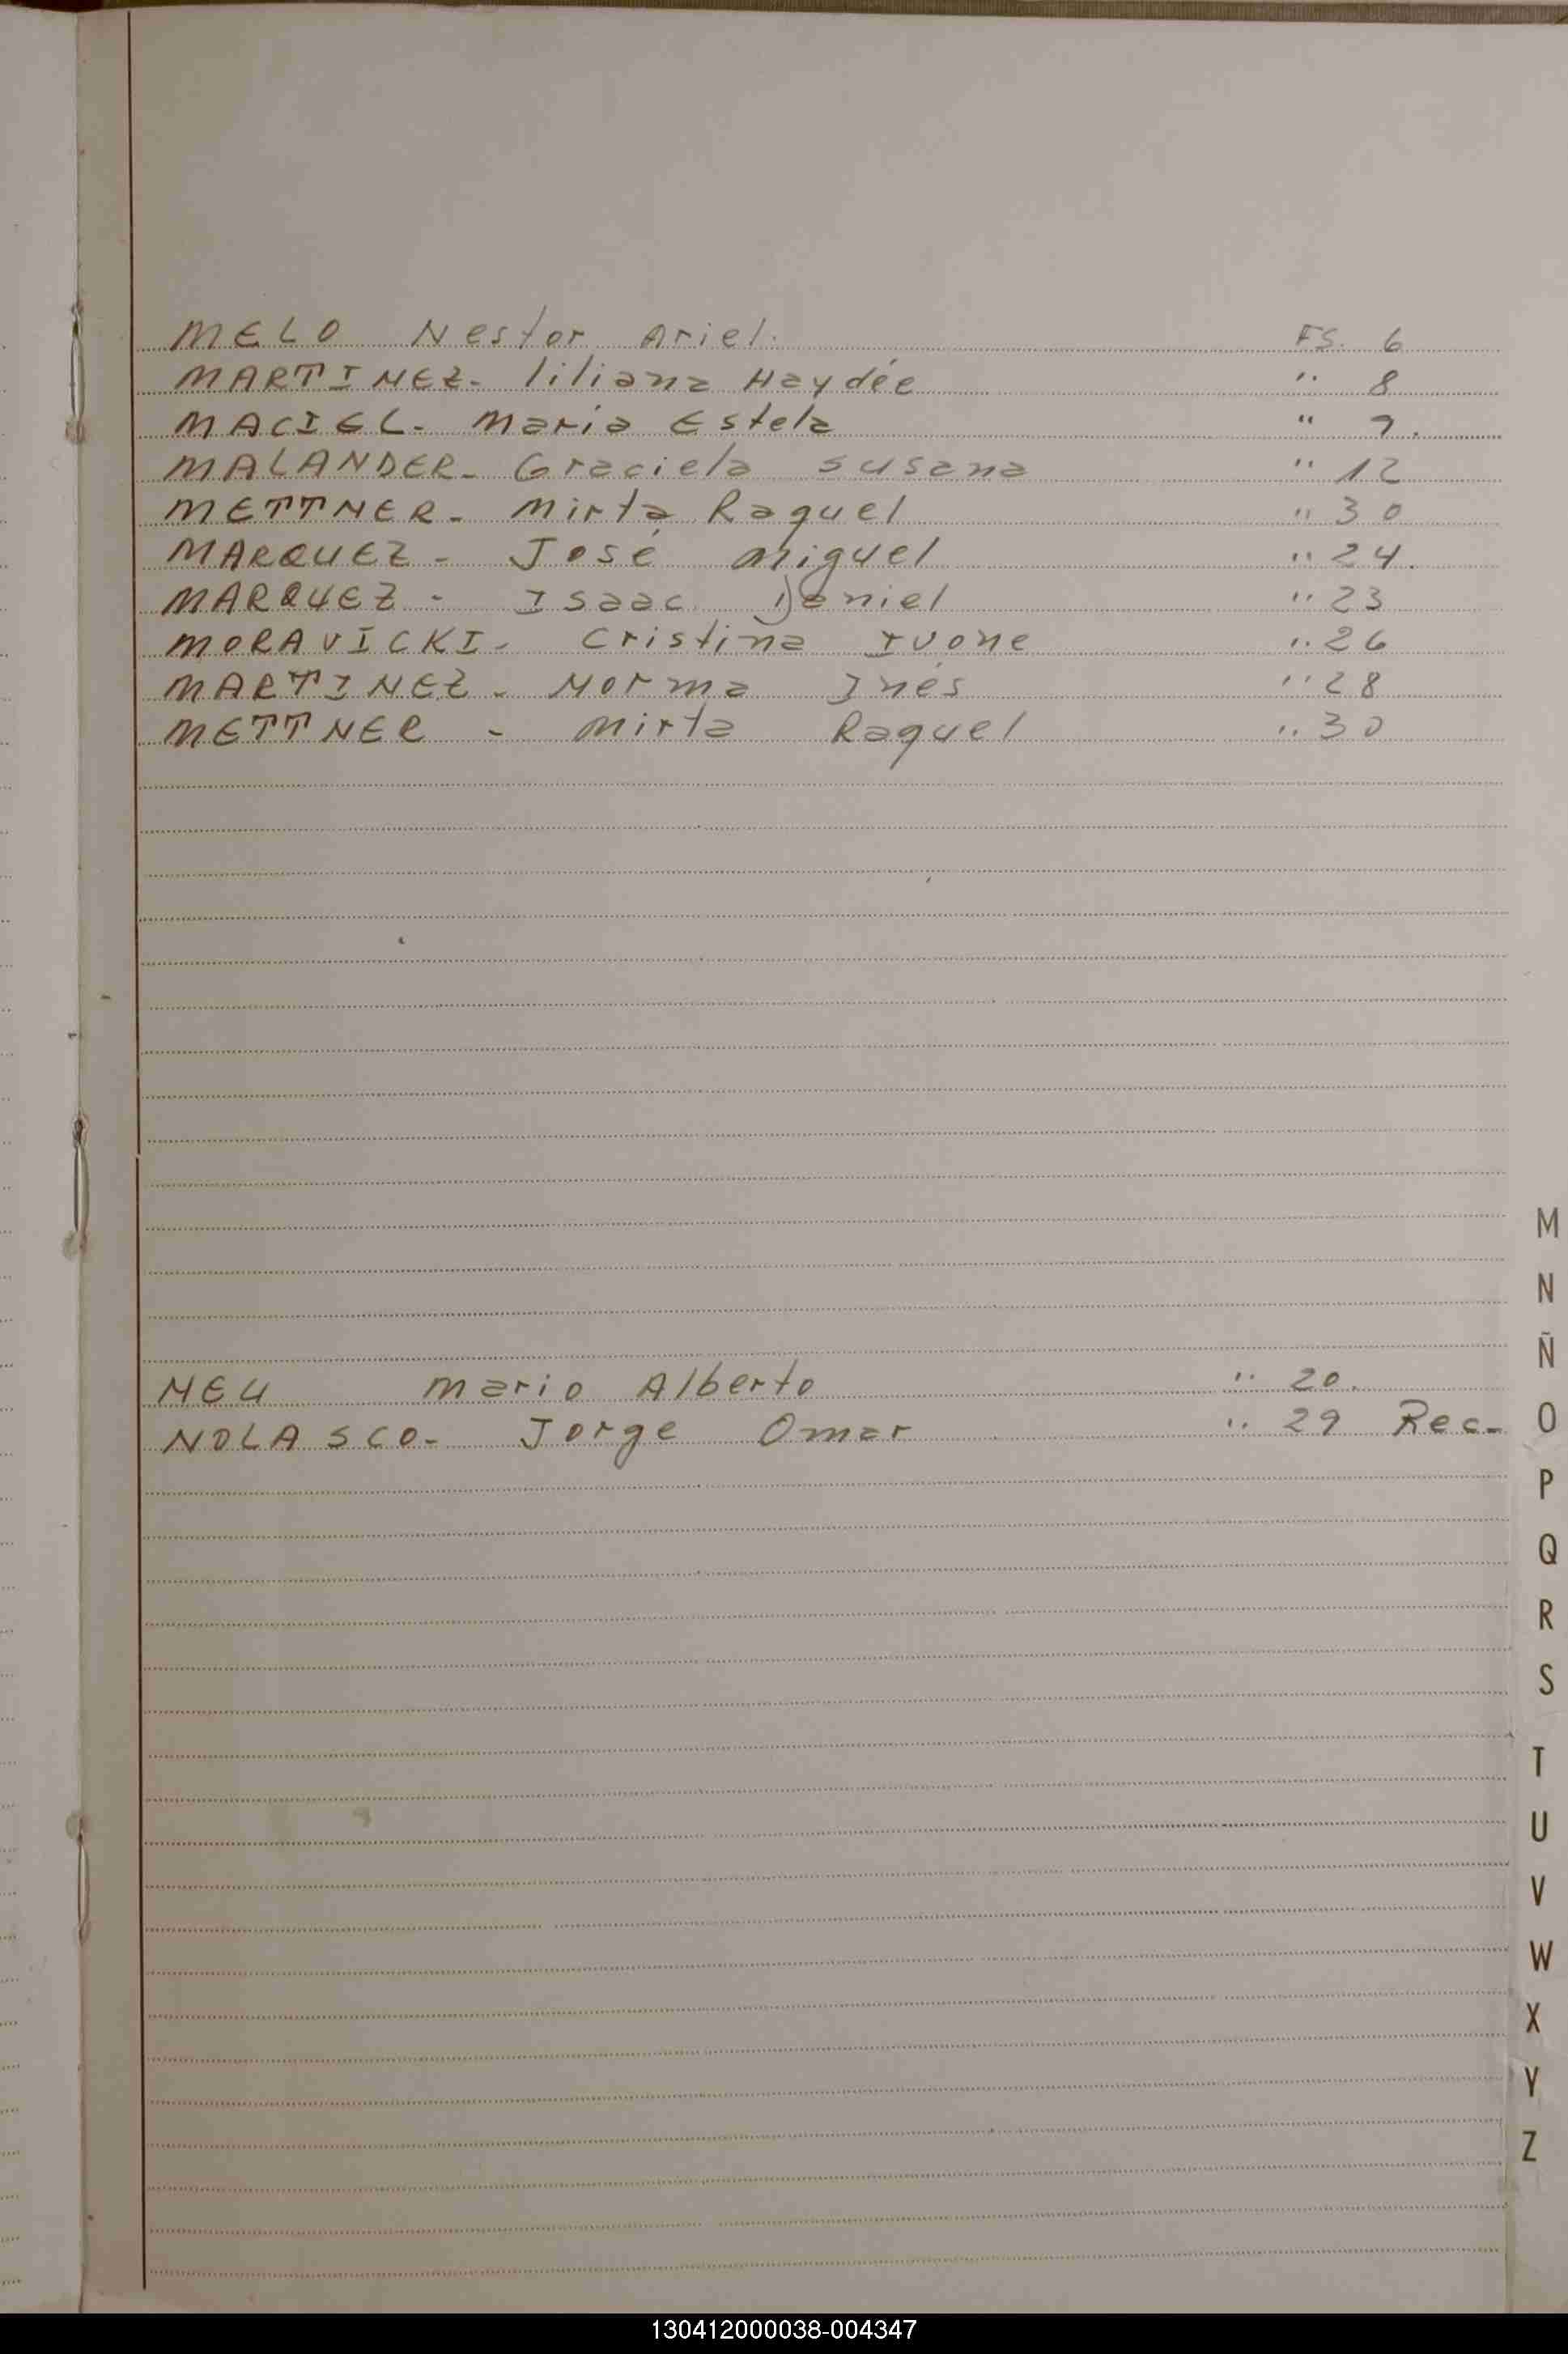 MELO Nestor Ariel. FS. 6
MARTINEZ- liliana Haydée " 8
MACIEL- Maria Estela " 9.
MALANDER- Graciela Susana " 12
METTNER- Mirta Raquel " 30
MARQUEZ- José Miguel " 24.
MARQUEZ- Isaac Daniel " 23
MORAVICKI- Cristina Ivone " 26
MARTINEZ- Norma Inés " 28
METTNER - Mirta Raquel " 30
NEU Mario Alberto " 20.
NOLASCO- Jorge Omar " 29 Rec-
M
N
Ñ
O
P
Q
R
S
T
U
V
W
X
Y
Z
130412000038-004347